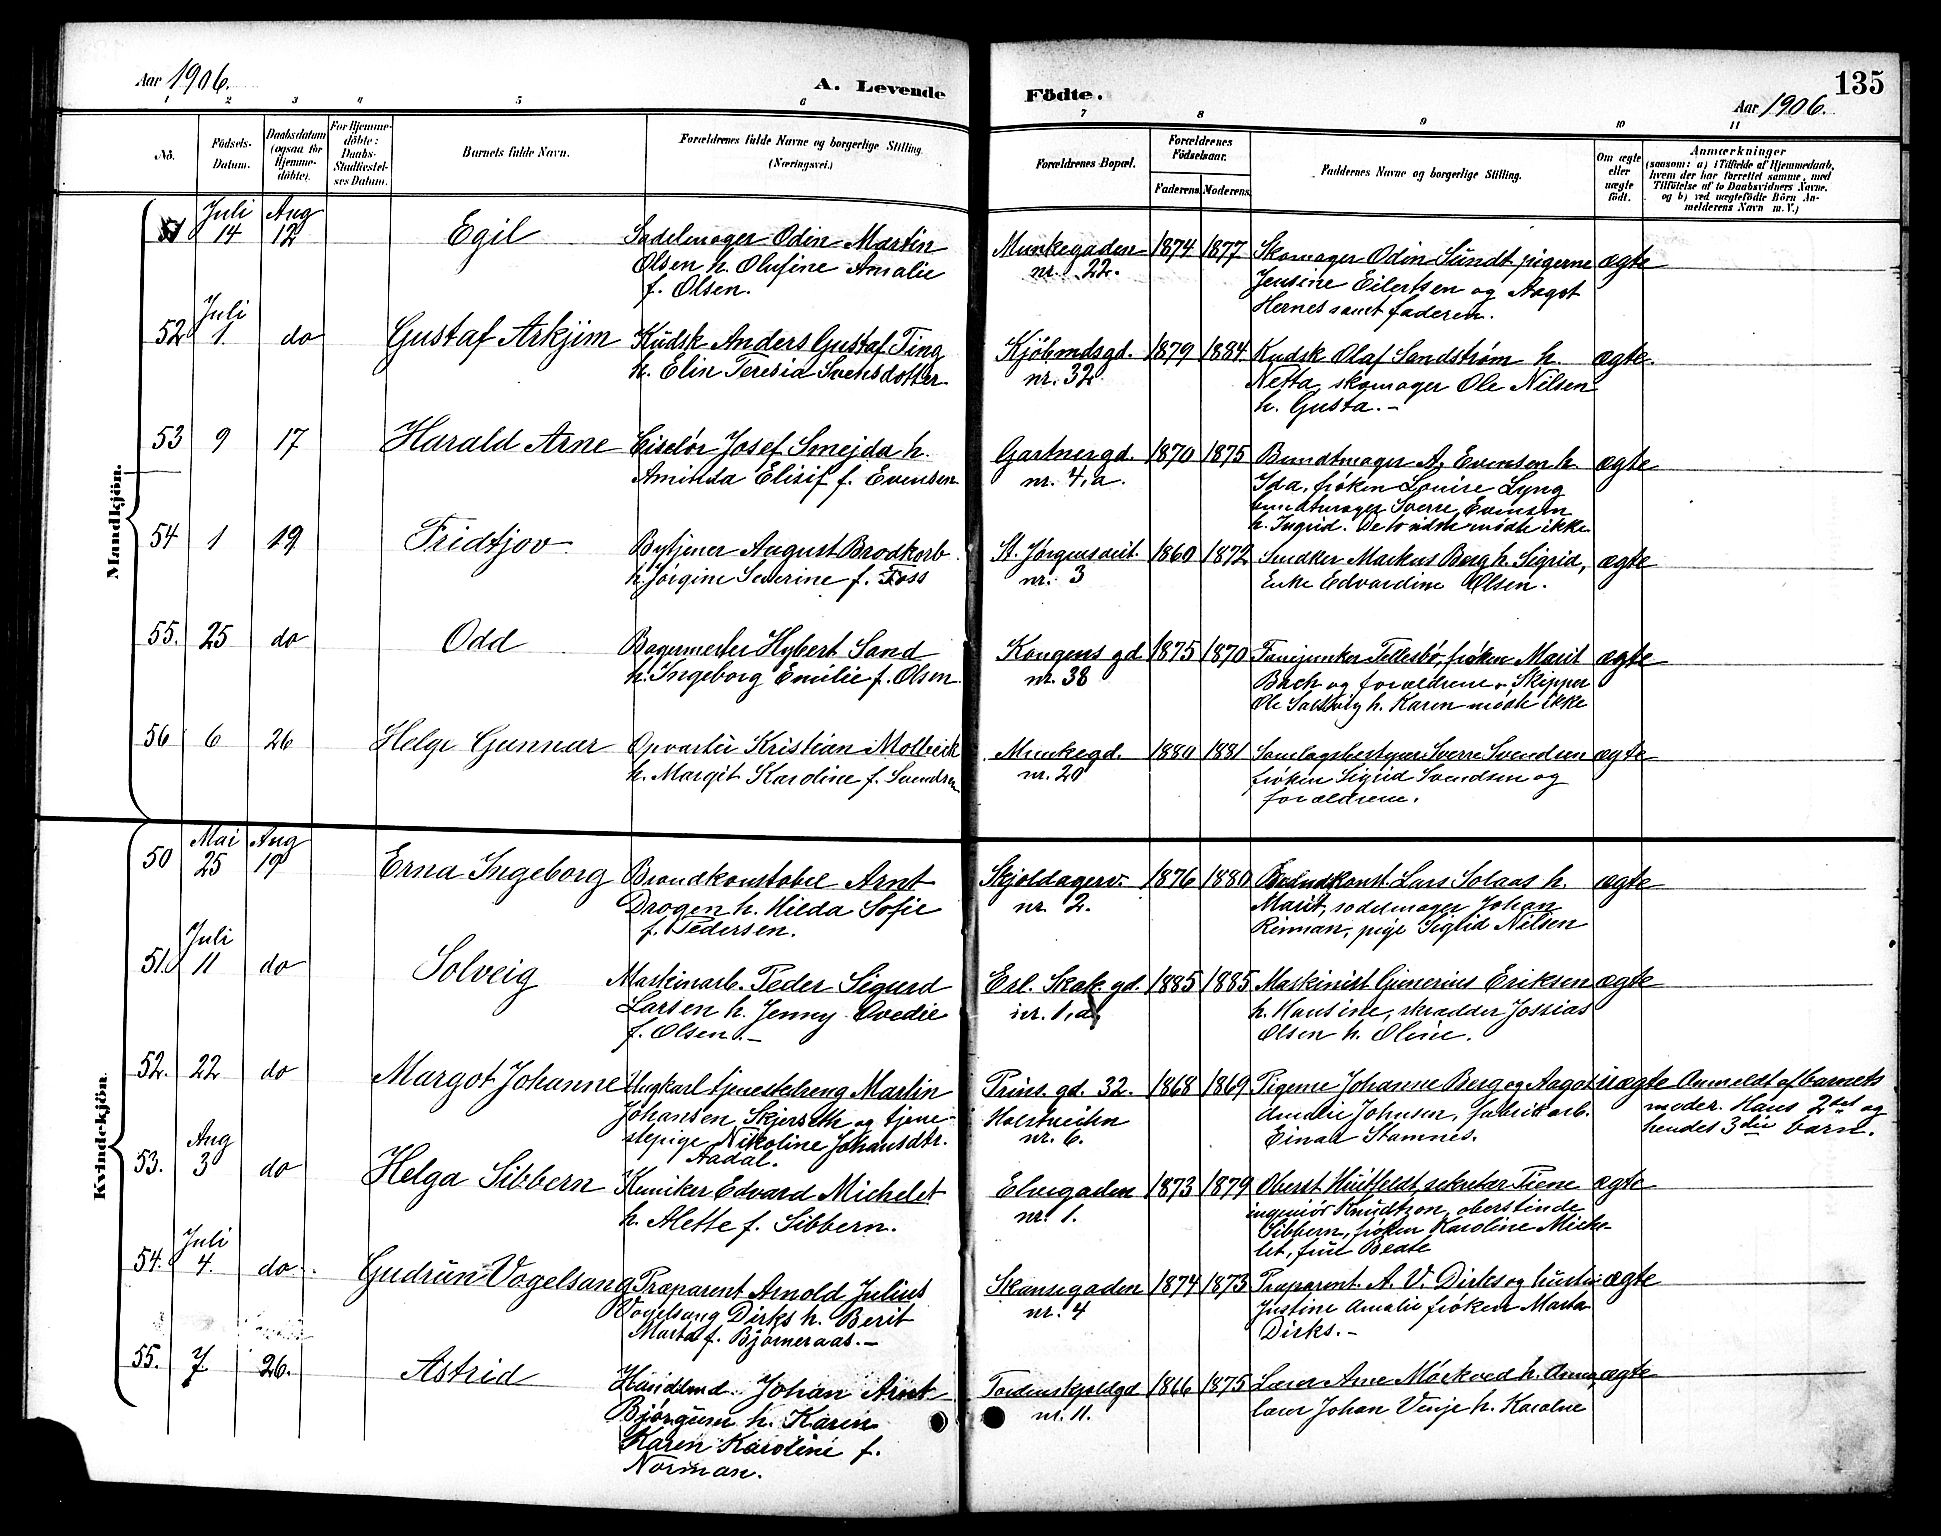 Aar 1906.
A. Levende
Födte.
135
Aar 1906.
1 2 3 4 5 6 7 8 9 10 11
Nö.
Födsels-Datum.
Daabsdatum (ogsaa for Hjemme-döbte).
For Hjemme-döbte: Daabs-Stadfæstel-ses Datum.
Barnets fulde Navn.
Forældrenes fulde Navne og borgerlige Stilling
(Næringsvei.)
Forældrenes Bopæl.
Forældrenes Födselsaar.
Faderens. Moderens.
Faddernes Navne og borgerlige Stilling.
Om ægte eller uægte födt.
Anmærkninger
(saasom: a) i Tilfælde af Hjemmedaab,
hvem der har forrettet samme, med
Tilföielse af to Daabsvidners Navne.
og b) ved uægtefödte Börn An-
melderens Navn m. V.)
Mandkjön.
51 Juli 14 Aug 12 Egil
Sadelmager Odin Martin
Olsen h. Olufine Amalie
f. Olsen.
Munkegaden
nr. 22.
1874 1877
Skomager Odin Sundt pigerne
Jensine Eilertsen og Aagot
Hernes samt faderen.
ægte
52 Juli 1. do Gustaf Arkjim
Kudsk Anders Gustaf Ting
h. Elin Teresia Svensdotter
Kjöbmdsgd.
nr. 32
1879 1884
Kudsk Olaf Sandstrøm h.
Netta, skomager Ole Nilsen
h. Gusta.-
ægte.
53 9 17 Harald Arne
Ciselör Josef Smejda h.
Aminda Elisif f. Evensen
Gartnergd.
nr. 4,a.
1870 1875
Bundtmager A. Evensen h.
Ida, frøken Louise Lyng
bundtmager Sverre Evensen
h. Ingrid. De to sidste mødte ikke
ægte
54 1 19 Fridtjov
Bytjener August Brodkorb
h. Jørgine Severine f. Foss
St. Jørgensveit.
nr. 3
1860 1872
Snedker Markus Berg h. Sigrid,
Enke Edvardine Olsen.
ægte
55. 25 do Odd
Bagermester Hybert Sand
h. Ingeborg Emilie f. Olsen.
Kongens gd
nr. 38
1875 1870
Fanejunker Tellesbø, frøken Marit
Bach og forældrene. Skipper
Ole Solsvig h. Karen mødte ikke
ægte
56 6 26 Helge Gunnar
Opvarter Kristian Molbeck
h. Margit Karoline f. Svendsen
Munkegd.
nr. 20
1880 1881
Samlagsbestyrer Sverre Svendsen
frøken Sigrid Svendsen og
forældrene.
ægte
Kvindekjön.
50 Mai 25 Aug 19 Erna Ingeborg
Brandkonstabel Arnt
Drogen h. Hilda Sofie
f. Pedersen.
Skjoldagerv.
nr. 2.
1876 1880
Brandkonst. Lars Solaas h.
Marit, sadelmager Johan
Rinnan, pige Sigrid Nilsen
ægte
51. Juli 11 do Solveig
Maskinarb. Peder Sigurd
Larsen h. Jenny Ovedie
f. Olsen.-
Erl. Skak. gd.
nr. 1,a.
1885 1885
Maskinist Gunerius Eriksen
h. Hansine, skrædder Jossias
Olsen h. Oline.
ægte
52. 22 do Margot Johanne
Ungkarl tjenestedreng Martin
Johansen Skjerseth og tjene-
stepige Nikoline Johansdtr.
Aadal.
Prins. gd. 32.
Holstveiten
nr. 6.
1868 1869
Pigerne Johanne Berg og Aagot
Johnsen, fabrikarb.
Einar Stamnes.
uægte
Anmeldt af barnets
moder. Hans 2det og
hendes 3die barn.
53. Aug 3 do Helga Sibbern
Kemiker Edvard Michelet
h. Alette f. Sibbern.
Elvegaden
nr. 1.
1873 1879
Oberst Huitfeldt, sekretær Tiene
ingeniör Knudtzon, oberstinde
Sibbern, frøken Karoline Miche-
let, frue Beate
ægte
54. Juli 4. do. Gudrun Vogelsang
Præparent Arnold Julius
Vogelsang Dirks h. Berit
Marta f. Bjørneraas.-
Skansegaden
nr. 4
1874 1873
Præparent. A. V. Dirks og hustru
Justine Amalie frøken Marta
Dirks.-
ægte
55. 7 26. Astrid
Handlmd. Johan Arnt
Bjørgum h. Karen
Karen Karoline f.
Norman.
Tordenskjoldgd
nr. 11.
1866 1875
Lærer Arne Mörkved h. Anna,
lærer Johan Vinje h. Karolne
ægte